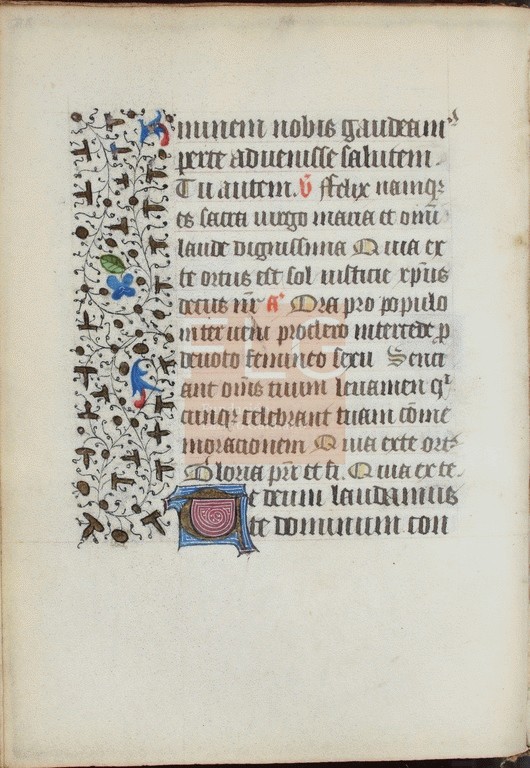 minem nobis gaudeam9
perte aduenisse salutem.
Tu autem. V ffelix namq3
es sacra uirgo maria et omi
laude dignissima Quia ex
te ortus est sol iusticie xp̄us
deus nr̄ R̄ Ora pro populo
interueni pro clero intercede ꝓ
deuoto femineo sexu Senci
ant om̄s tuum leuamen q̄
cunq3 celebrant tuam cōme
moracionem Quia exte ort9
Gloria pr̄i et fi. Quia ex te.
Te deum laudamus
te dominum con